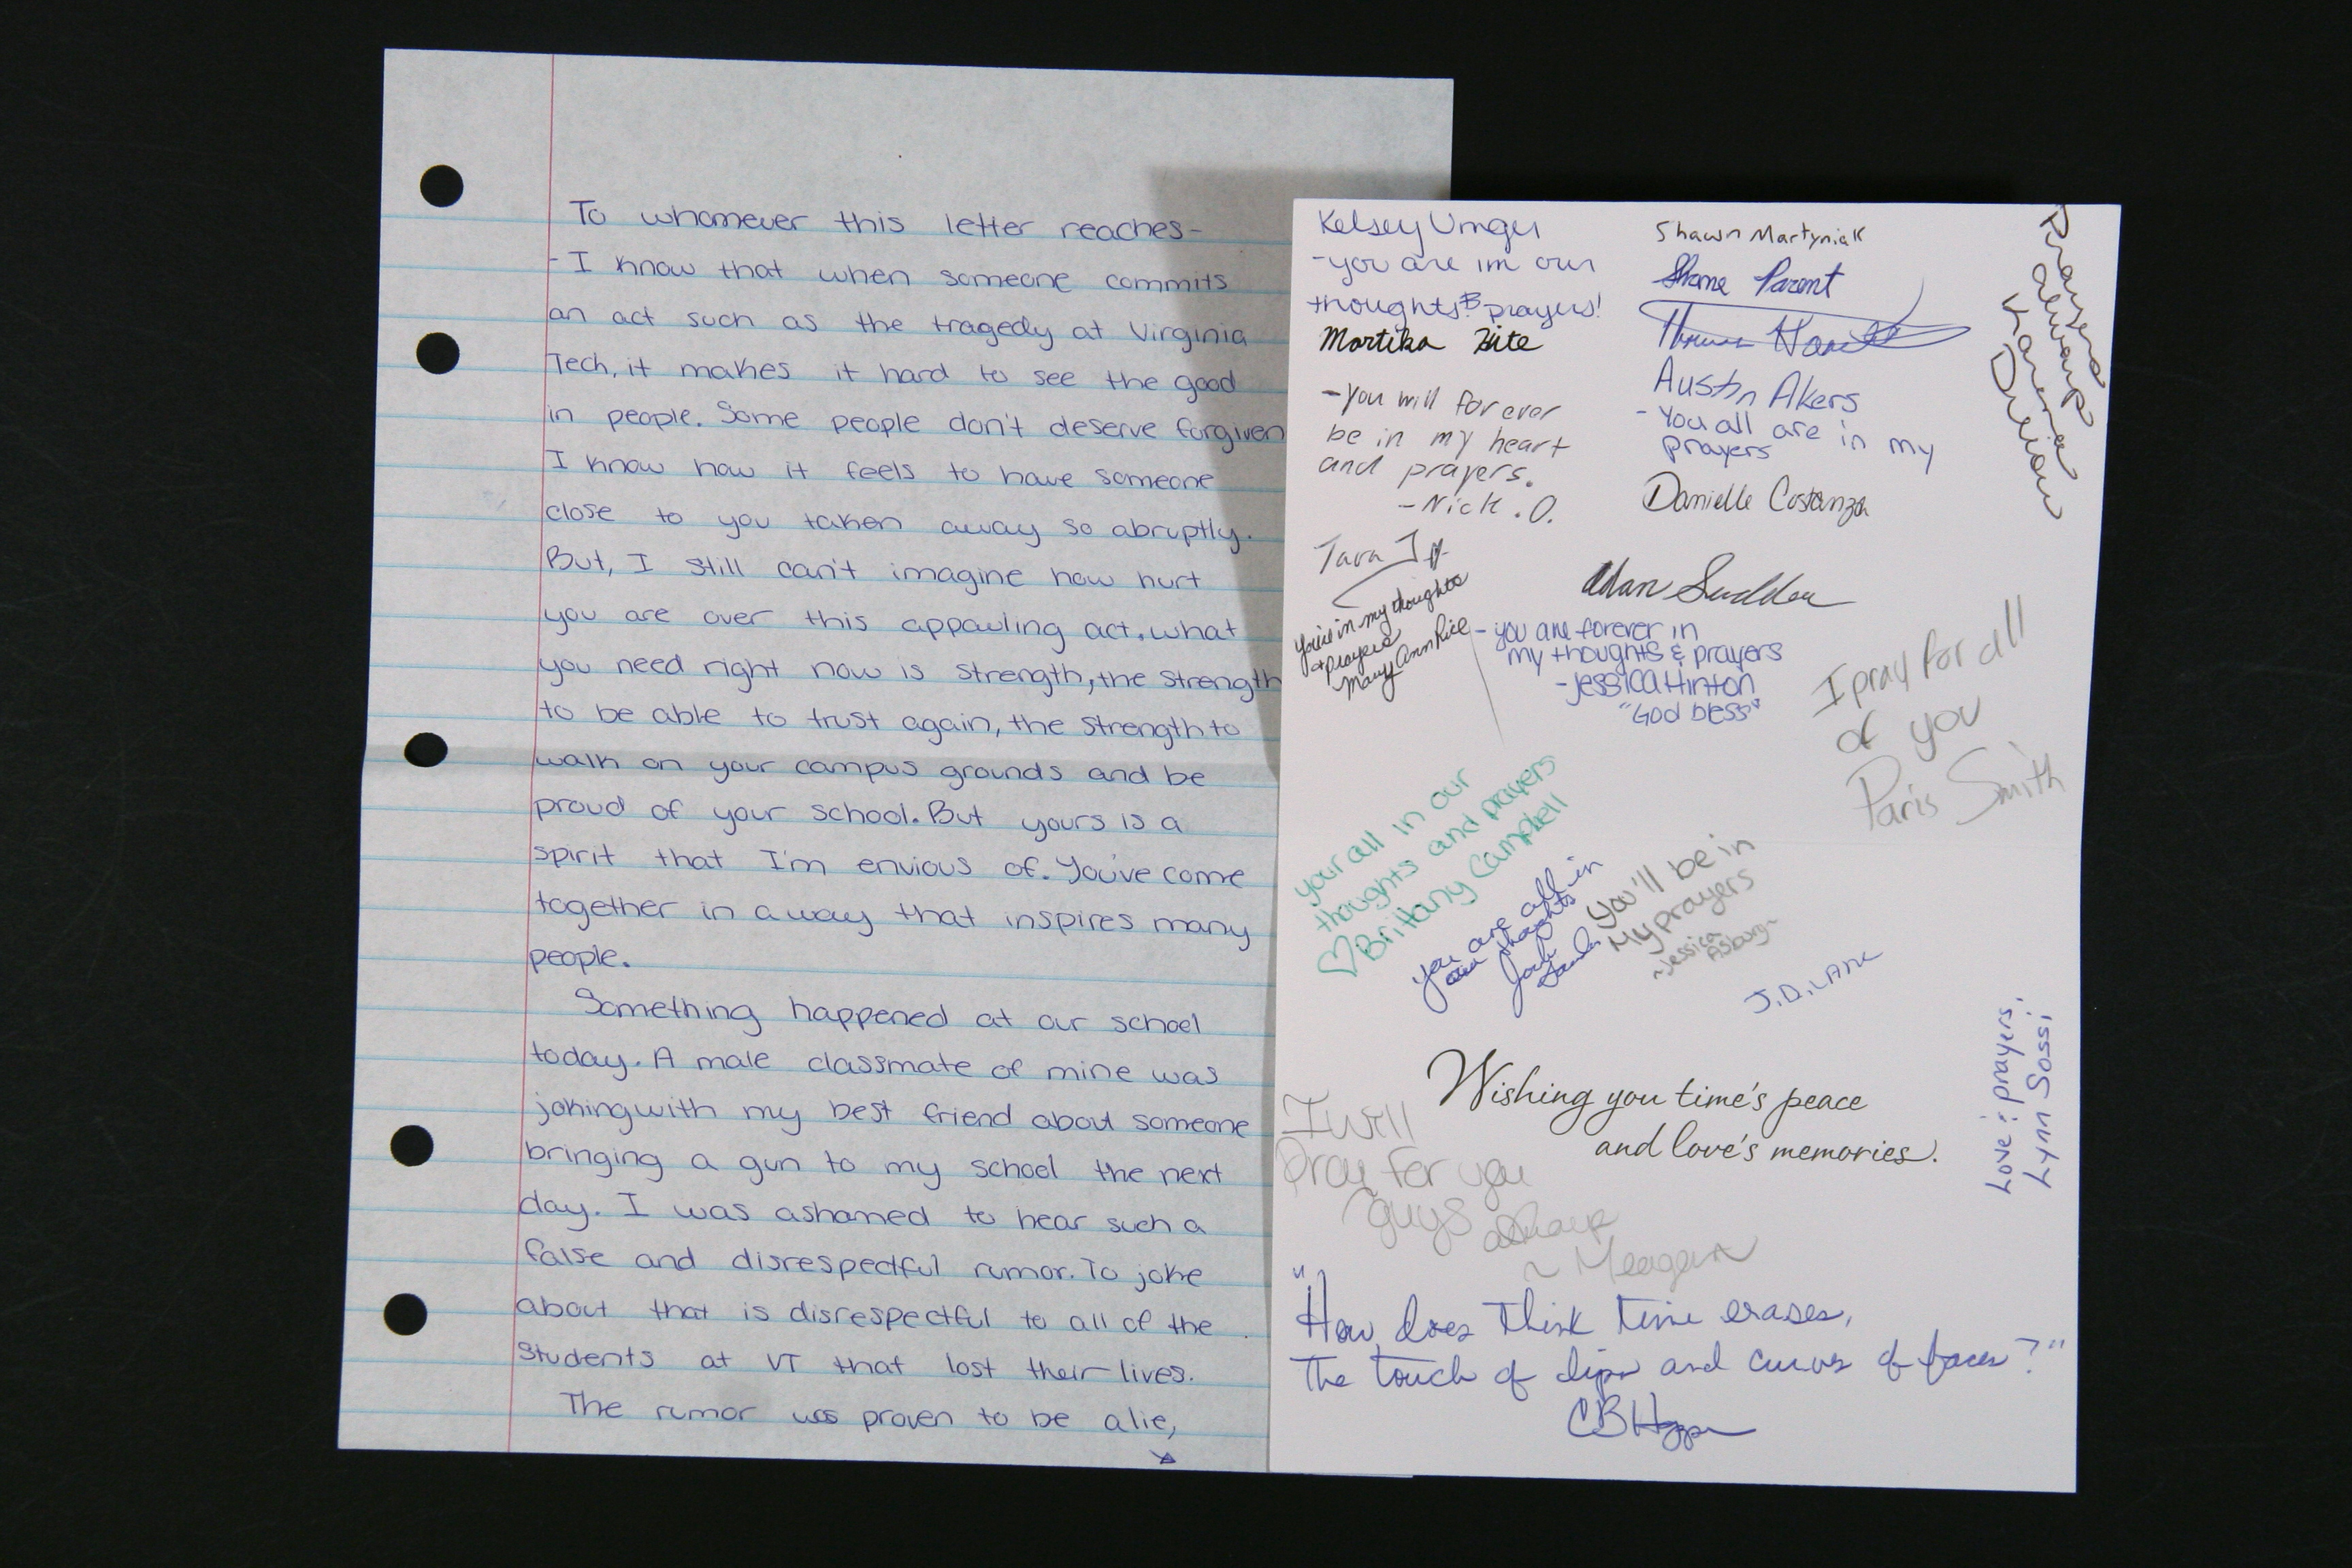 To whomever this letter reaches-
- I know that when someone commits
an act such as the tragedy at Virginia
Tech, it makes it hard to see the good
in people. Some people don't deserve forgiven
I know how it feels to have someone
close to you taken away so abruptly.
But, I still can't imagine how hurt
you are over this appauling act. what
you need right now is strength, the strength
to be able to trust again, the strength to
walk on your campus grounds and be
proud of your school. But yours is a
spirit that I'm envious of. You've come
together in a way that inspires many
people.
Something happened at our school
today. A male classmate of mine was
joking with my best friend about someone
bringing a gun to my school the next
day. I was ashamed to hear such a
false and disrespectful rumor. To joke
about that is disrespectful to all of the
students at VT that lost their lives.
The rumor was proven to be a lie,
Kelsey Unger
- you are in our
thoughts & prayers!
Martika Hite
- You will forever
be in my heart
and prayers.
- Nick. O.
Tara J
You're in my thoughts
+ prayers
Mary Ann Rice
Shawn Martyniak
Shane Parent
Austin Akers
- You all are in my
prayers
Danielle Costanza
Prayers
always
- you are forever in
my thoughts & prayers
- Jessica Hinton
"God bless"
I pray for all
of you
Paris Smith
your all in our
thoughts and prayers
♡ Brittany Campbell
you are all in
our thoughts
You'll be in
My prayers
~Jessica
Asburn
J.D. LANE
Wishing you time's peace
and love's memories.
Love & prayers,
Lynn Sossi
I will
Pray for you
guys always
~ Meagan
"How does think time erases,
The touch of lips and curves of faces?"